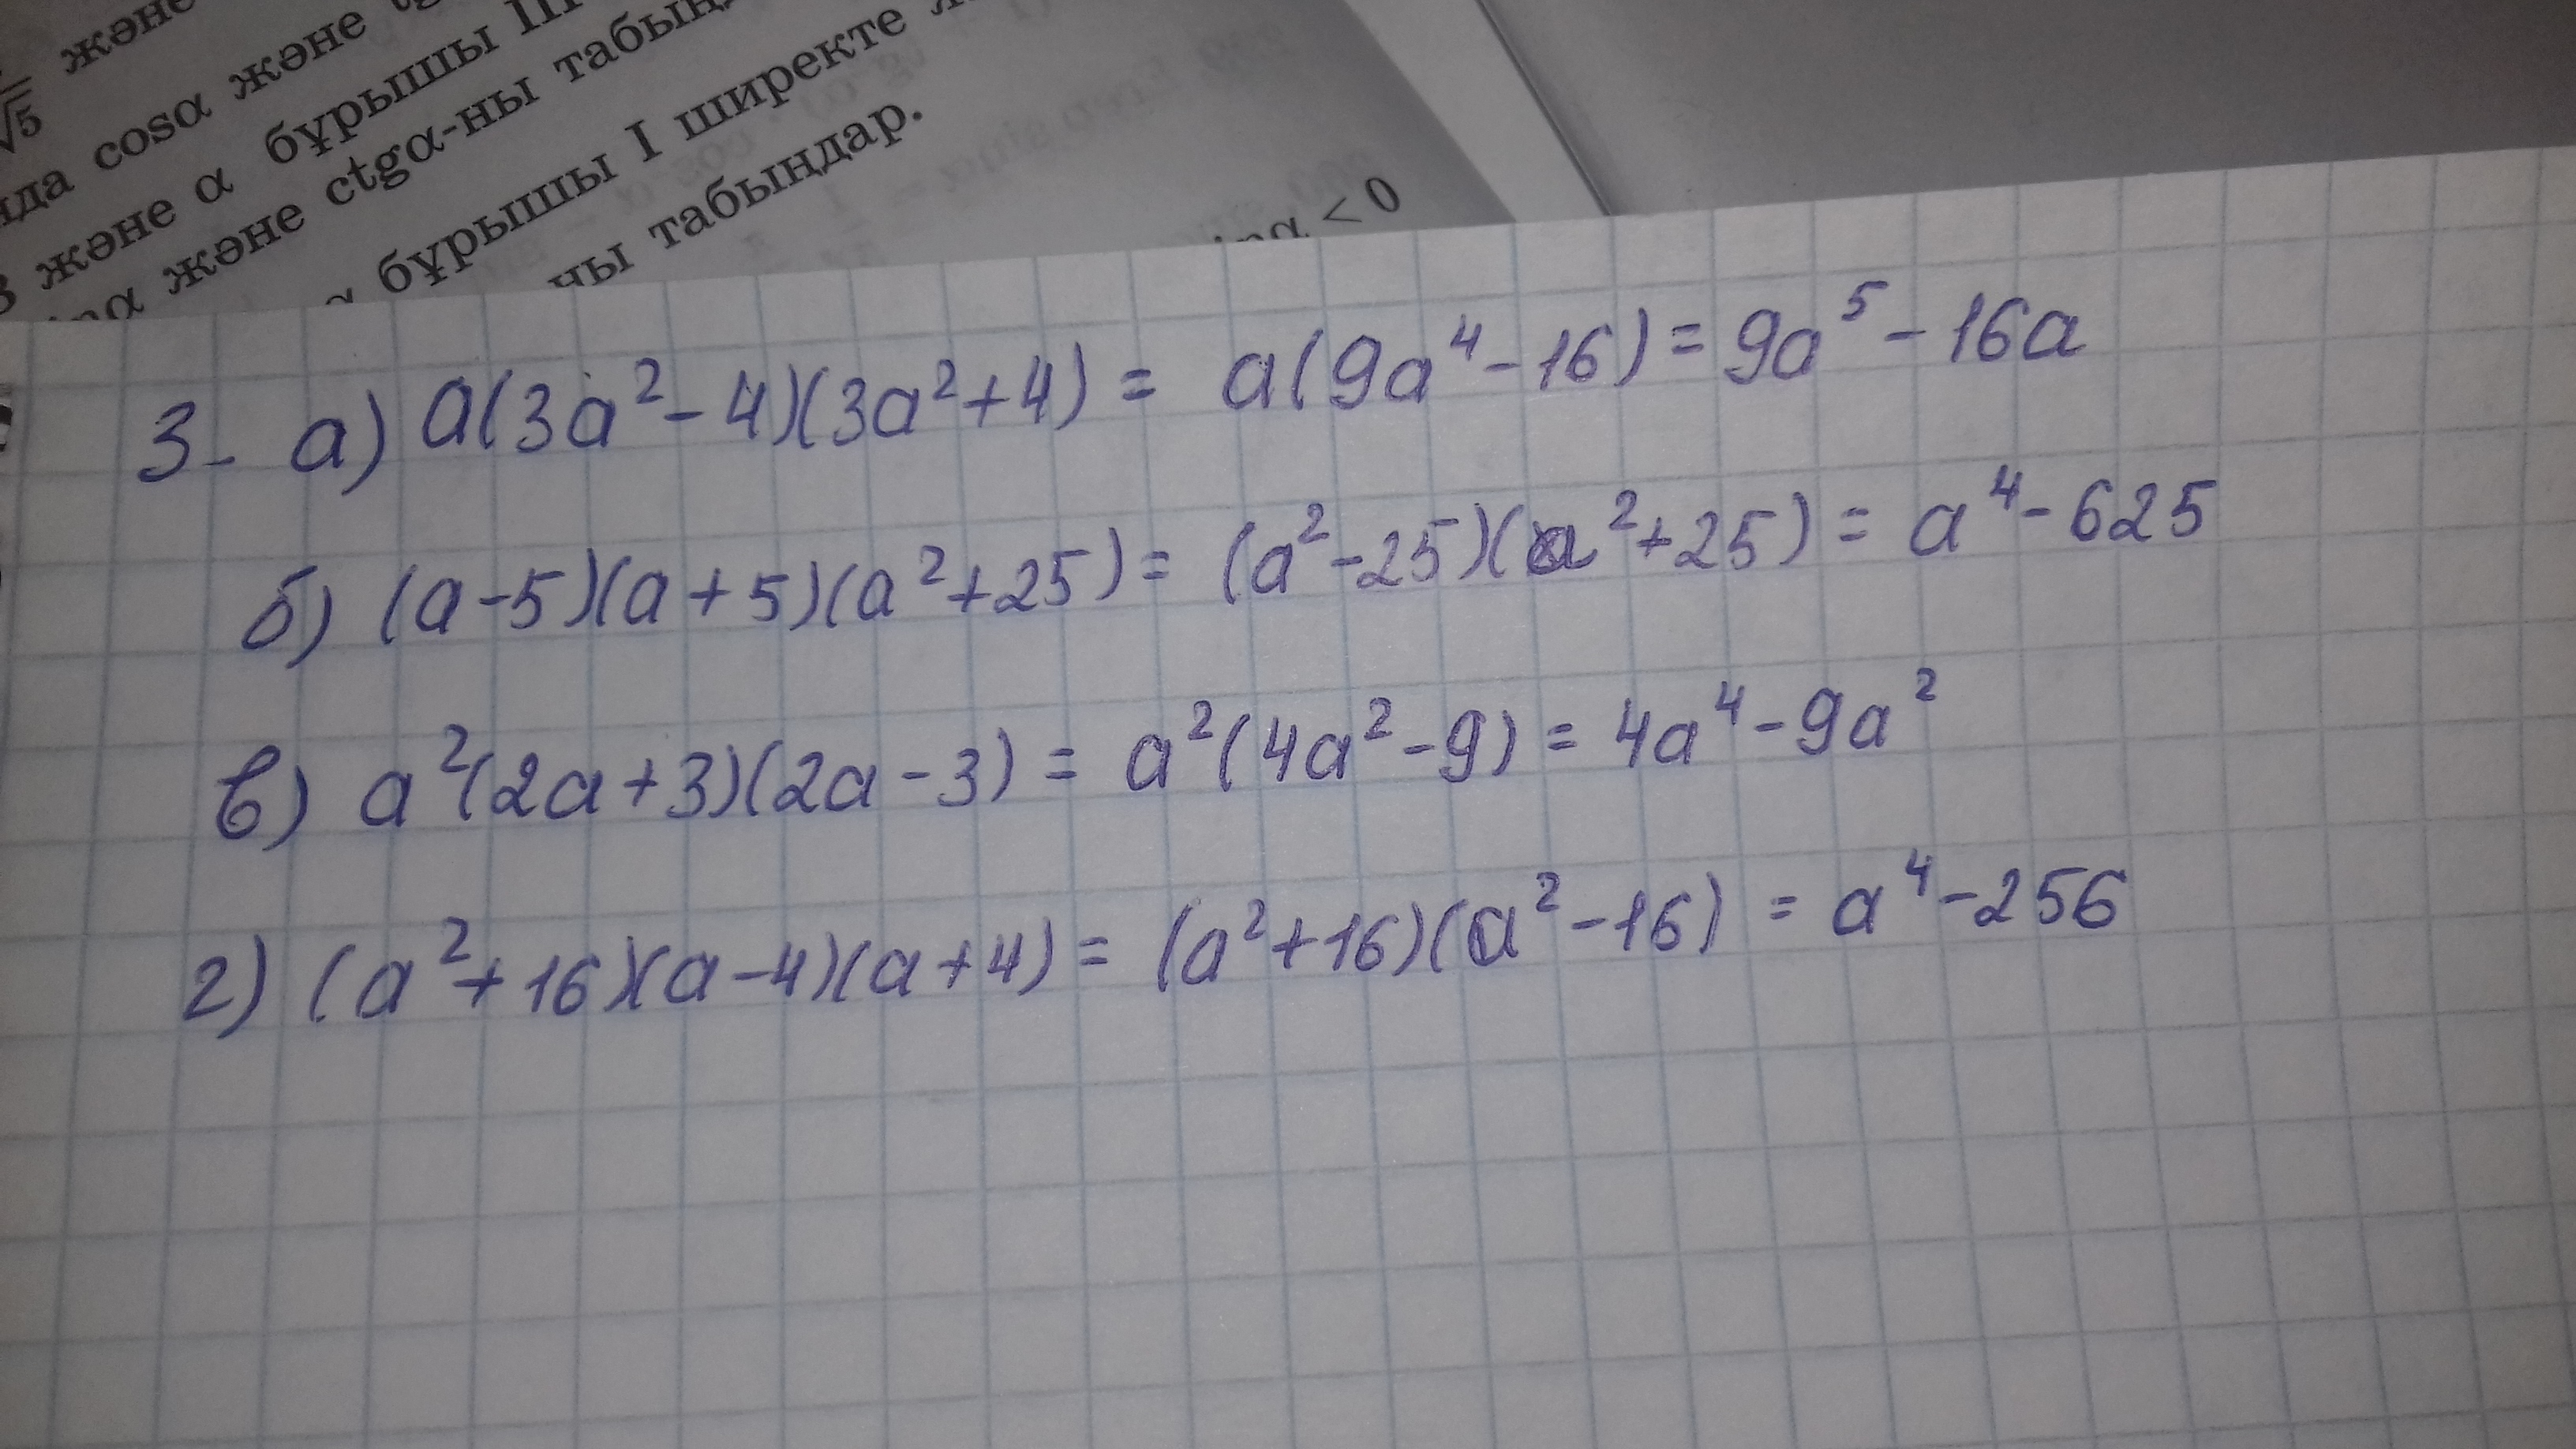 √5 және
cosα және
және α бұрышы
және ctgα-ны
бұрышы I ширекте
ны табыңдар.
α < 0
3- а) a(3a²-4)(3a²+4) = a(9a⁴-16) = 9a⁵-16a
б) (a-5)(a+5)(a²+25) = (a²-25)(a²+25) = a⁴-625
в) a²(2a+3)(2a-3) = a²(4a²-9) = 4a⁴-9a²
г) (a²+16)(a-4)(a+4) = (a²+16)(a²-16) = a⁴-256